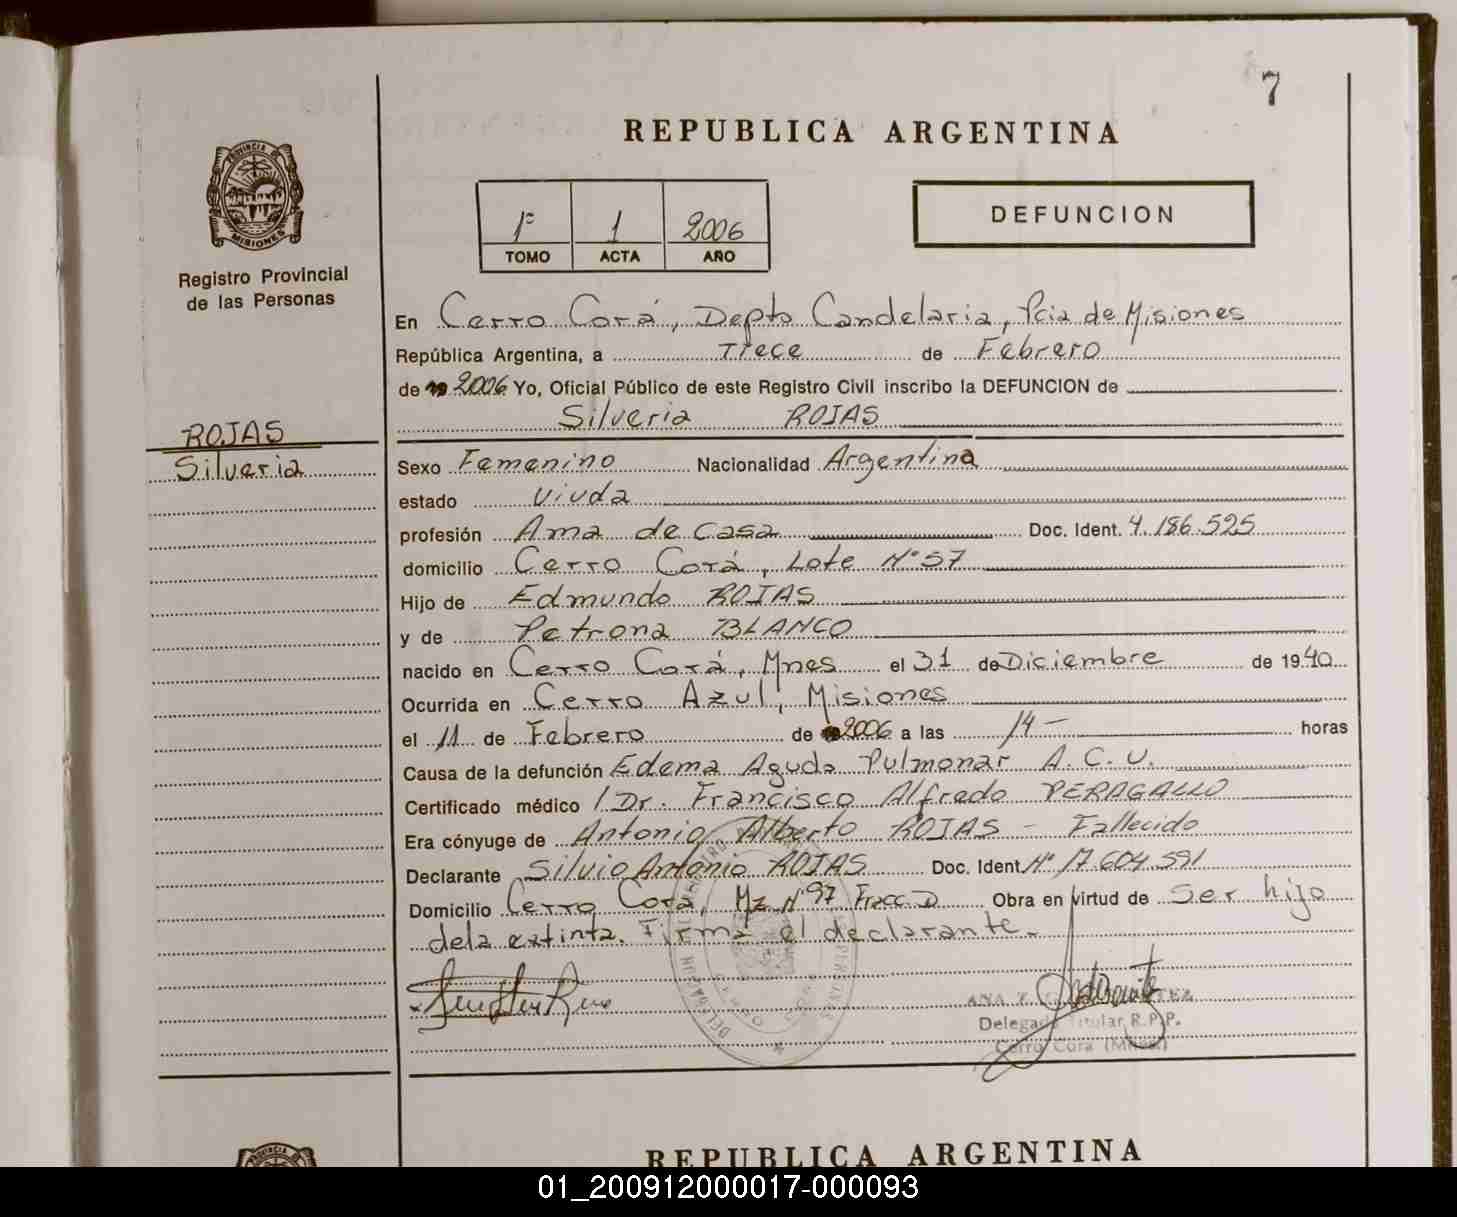 7
REPUBLICA ARGENTINA
PROVINCIA DE
MISIONES
Registro Provincial
de las Personas
1º 1 2006
TOMO ACTA AÑO
DEFUNCION
En Cerro Corá, Depto Candelaria, Pcia de Misiones
República Argentina, a Trece de Febrero
de 2006 Yo, Oficial Público de este Registro Civil inscribo la DEFUNCION de
Silveria ROJAS
ROJAS
Silveria
Sexo Femenino Nacionalidad Argentina
estado viuda
profesión Ama de casa Doc. Ident. 4.186.525
domicilio Cerro Corá, Lote Nº 57
Hijo de Edmundo ROJAS
y de Petrona BLANCO
nacido en Cerro Corá, Mnes el 31 de Diciembre de 1940
Ocurrida en Cerro Azul, Misiones
el 11 de Febrero de 2006 a las 14- horas
Causa de la defunción Edema Agudo Pulmonar A.C.V.
Certificado médico Dr. Francisco Alfredo PERAGALLO
Era cónyuge de Antonio Alberto ROJAS - Fallecido
Declarante Silvio Antonio ROJAS Doc. Ident Nº 17.604.591
Domicilio Cerro Corá, Mz Nº 97 Fracc. D Obra en virtud de Ser hijo
de la extinta. Firma el declarante.-
ANA
Delegada Titular R.P.P.
Cerro Cora (Mnes)
REPUBLICA ARGENTINA
01_200912000017-000093